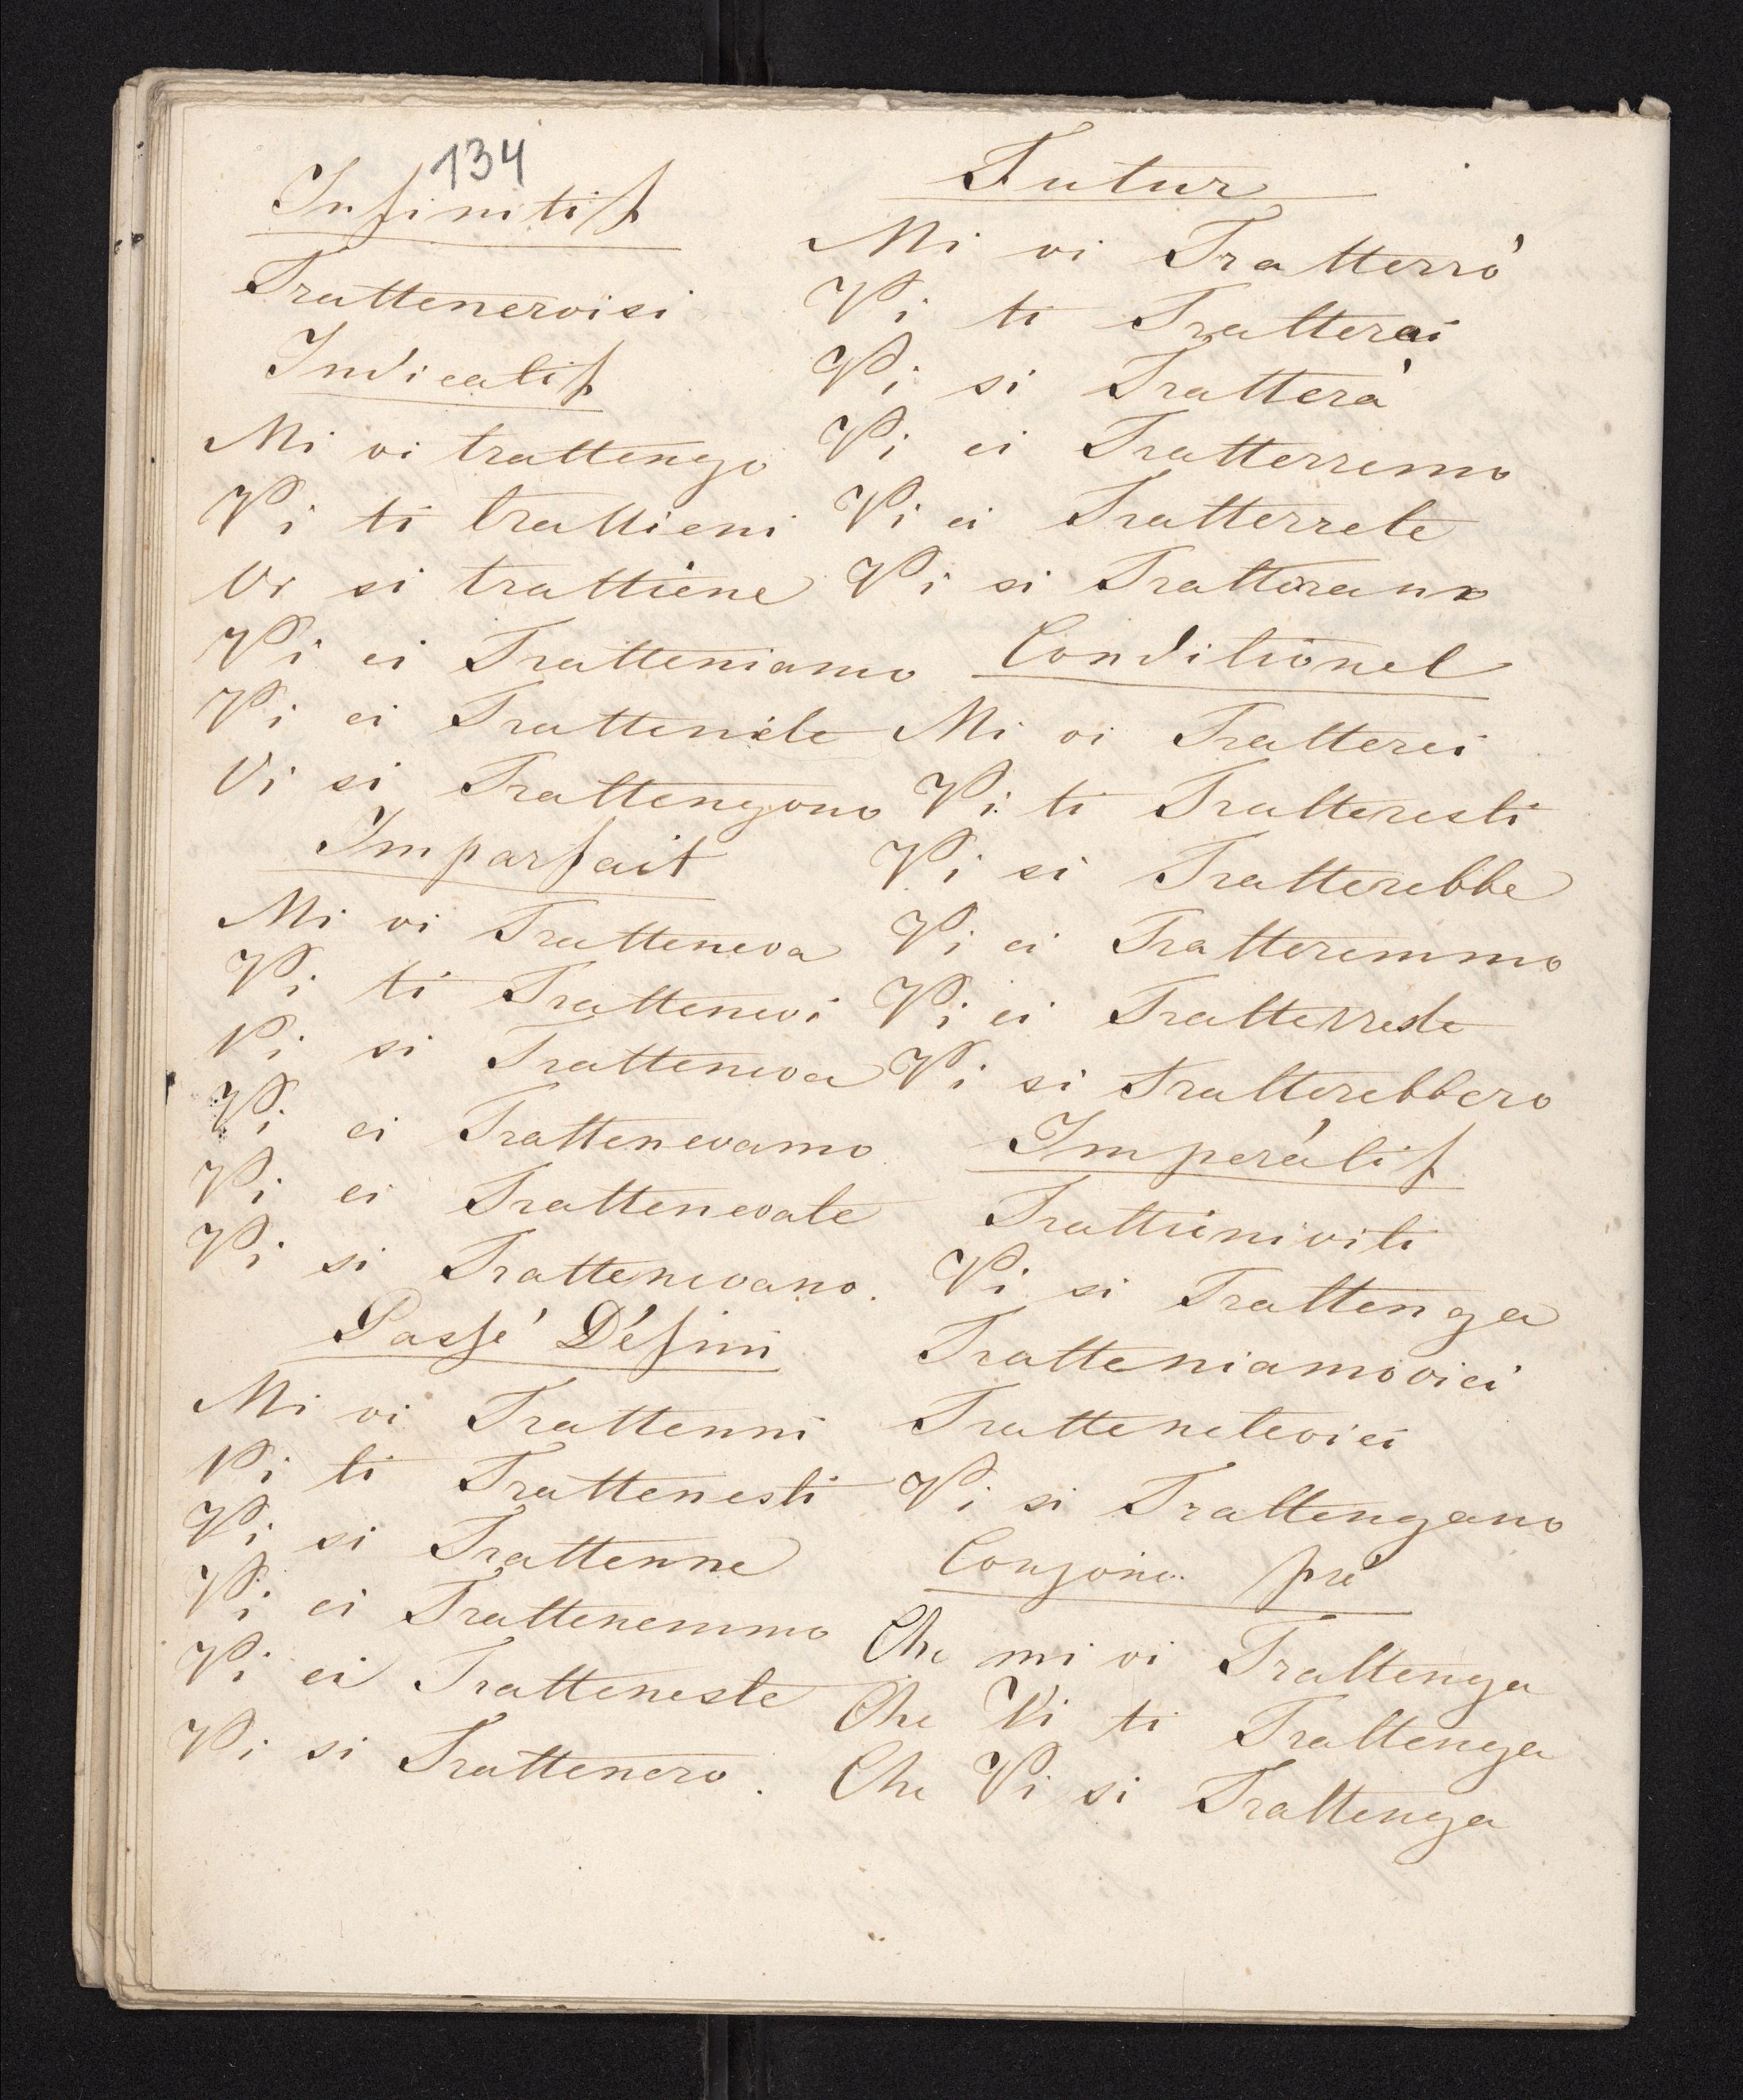 134
Infinitif
Trattenervisi
Indicatif
Mi vi trattengo
Vi ti trattieni
Vi si trattiene
Vi ci Tratteniamo
Vi ci Trattenete
Vi si Trattengono
Imparfait
Mi vi Tratteneva
Vi ti Trattenevi
Vi si Tratteneva
Vi ci Trattenevamo
Vi ci Trattenevate
Vi si Trattenevano.
Passé Défini
Mi vi Trattenni
Vi ti Trattenesti
Vi si Trattenne
Vi ci Trattenemmo
Vi ci Tratteneste
Vi si Trattenero.
Futur
Mi vi Tratterrò
Vi ti Tratterai
Vi si Tratterà
Vi ci Tratterremo
Vi ci Tratterrete
Vi si Tratterano
Conditionel
Mi vi Tratterei
Vi ti Tratteresti
Vi si Tratterebbe
Vi ci Tratteremmo
Vi ci Tratterreste
Vi si Tratterebbero
Impératif
Trattieniviti
Vi si Trattenga
Tratteniamovici
Trattenetevici
Vi si Trattengano
Conjonc. pré
Che mi vi Trattenga
Che Vi ti Trattenga
Che Vi si Trattenga